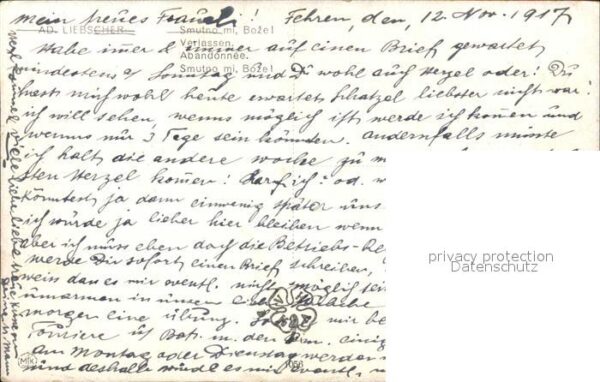 mein treues Frauli! Fehren, den, 12. Nov. 1917
AD. LIEBSCHER. Smutno mi, Boże!
Verlassen.
Abandonnée.
Smutno mi, Boże!
Habe imer & immer auf einen Brief gewartet
mindestens a Sonntag und Du wohl auch Herzel oder! Du
hast mich wohl heute erwartet Schatzel liebster nicht war!
ich will sehen, wenns möglich ist werde ich komen und
wenns nur 3 Tage sein könnten. Andernfalls müsste
ich halt die andere woche zu m
sten Herzel komen! Darf ich! od. w
Könntest ja dann einwenig später uns
ich würde ja lieher hier bleiben wenn
aber ich muss eben doch die Betriebs-
werde Dir sofort einen Brief schreiben,
weiss dan es mir eventl. nicht möglich sei
umarmen in unsern
morgen eine übung. mir be
m. den einig
am Montag oder Dienstag werden
und deshalb würde es mir eventl.
viele liebe
Deine
MK
1056
privacy protection
Datenschutz